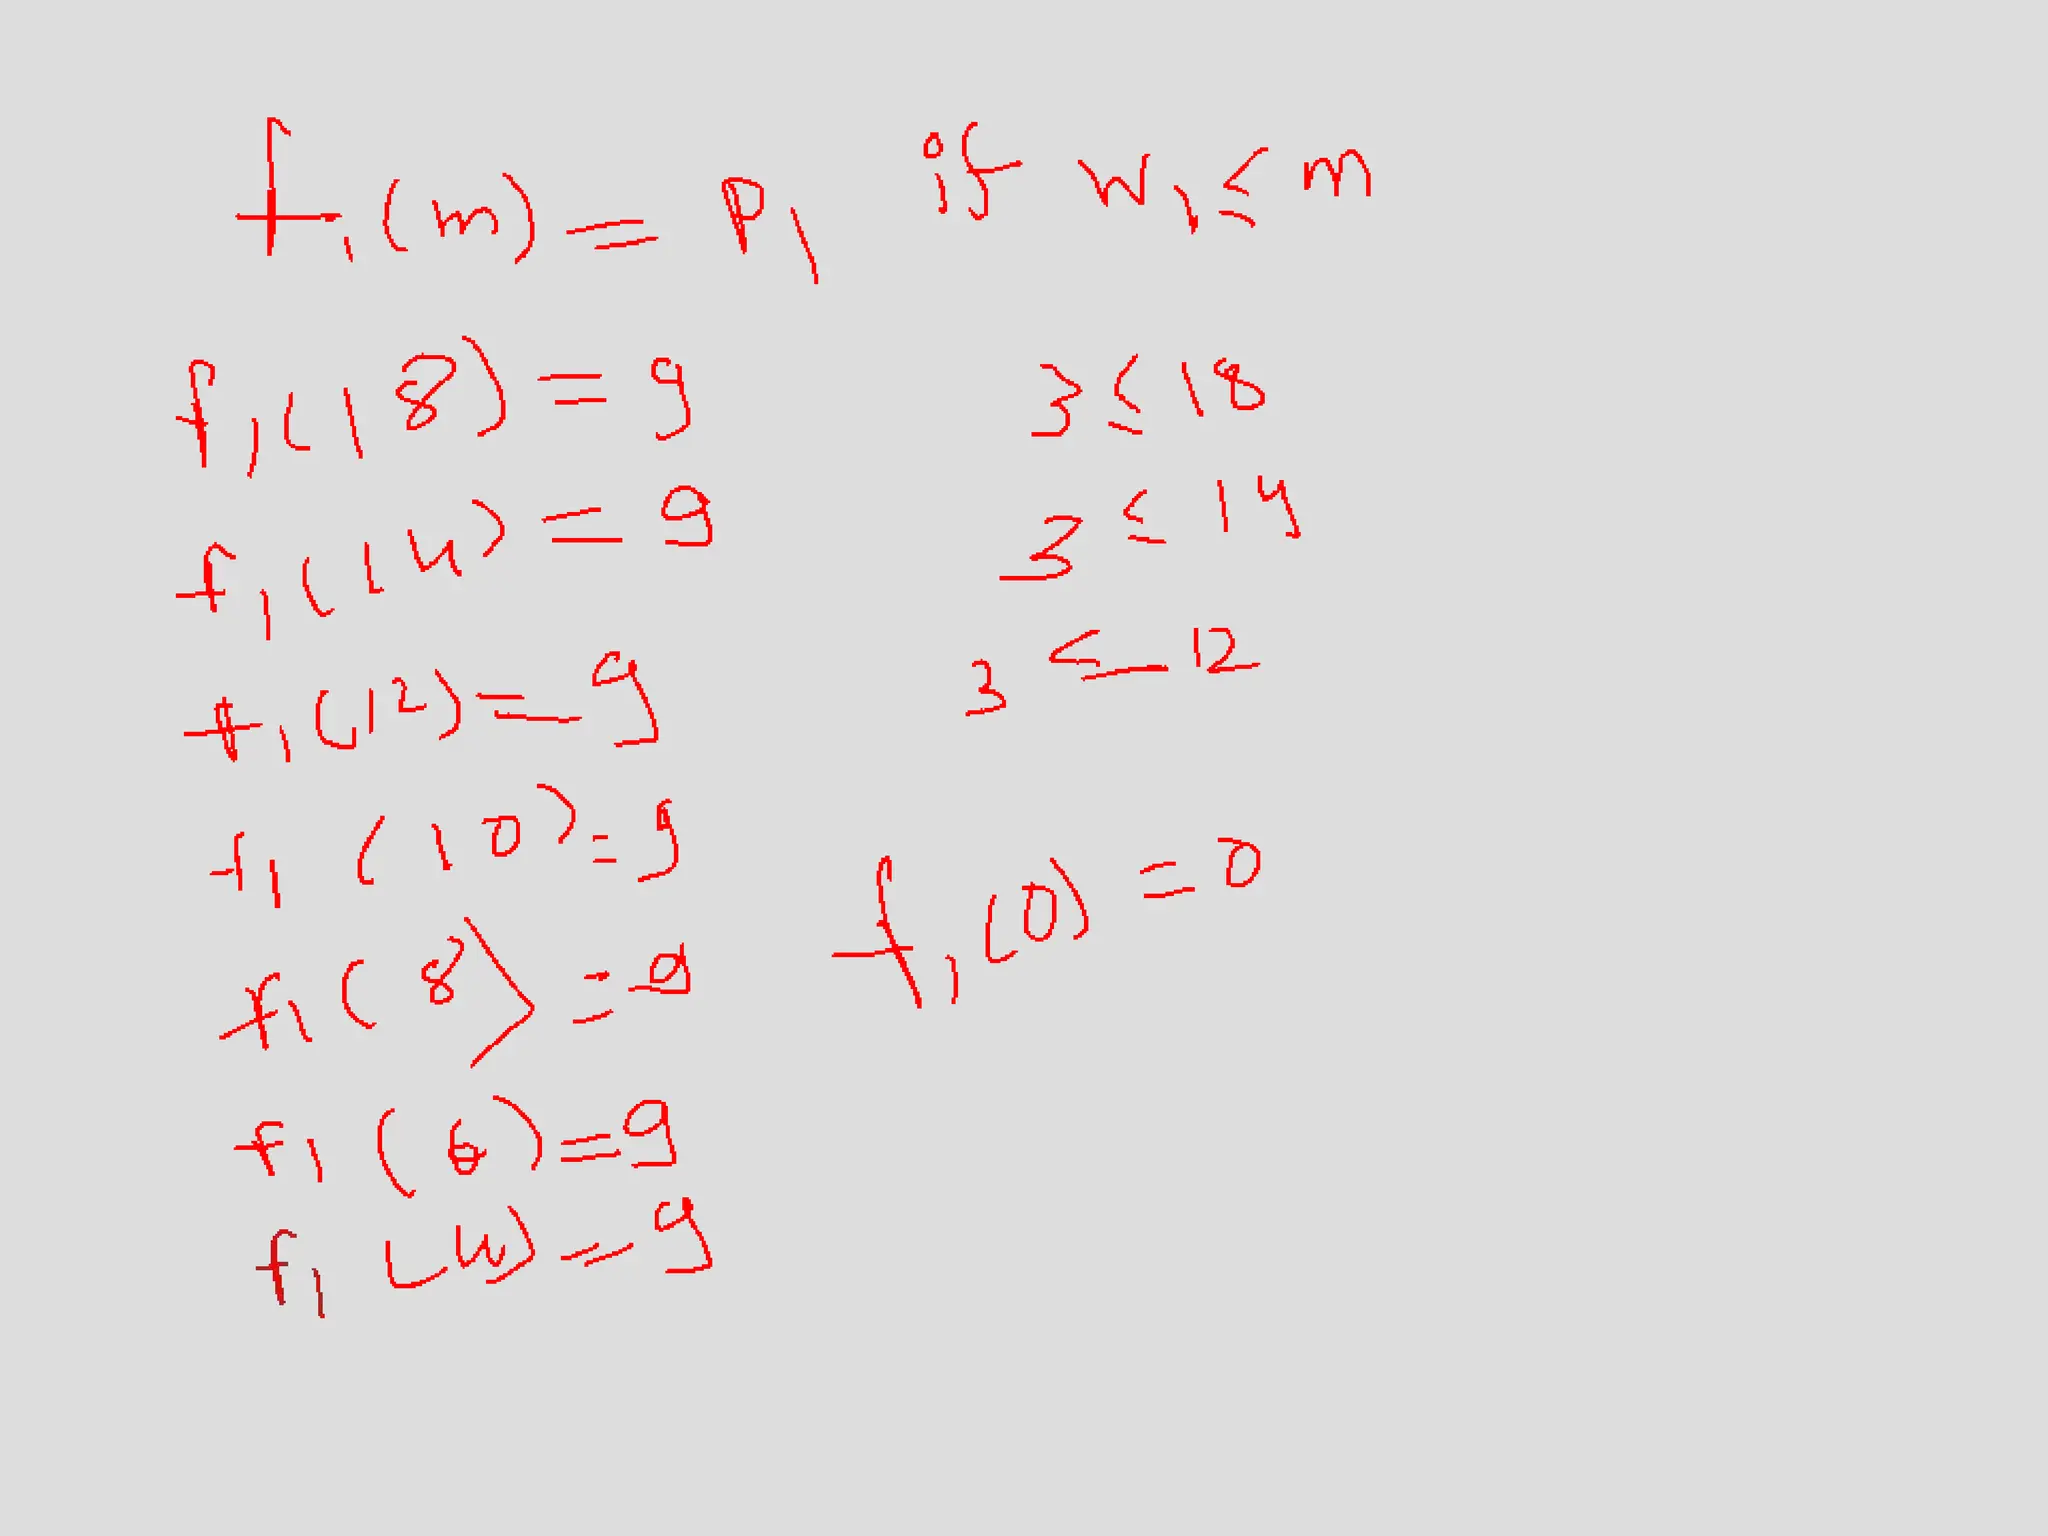 f₁(m) = P₁ if w₁ ≤ m
f₁(18) = 9 3 ≤ 18
f₁(14) = 9 3 ≤ 14
f₁(12) = 9 3 ≤ 12
f₁(10) = 9
f₁(0) = 0
f₁(8) = 9
f₁(6) = 9
f₁(4) = 9